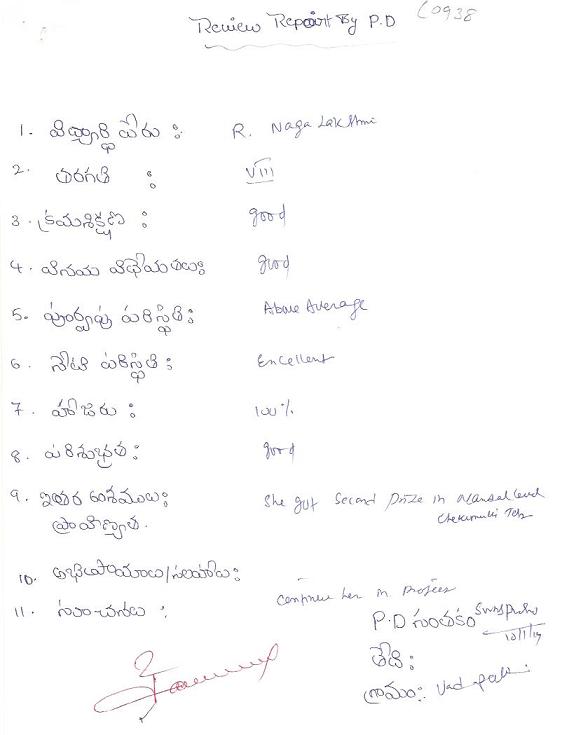 Review Report By P.D
10938
1. విద్యార్థి పేరు : R. Naga Lakshmi
2. తరగతి : VIII
3. క్రమశిక్షణ : good
4. వినయ విధేయతలు: good
5. పూర్వపు పరిస్థితి: Above Average
6. నేటి పరిస్థితి: Excellent
7. హాజరు : 100%
8. పరిశుభ్రత: good
9. ఇతర అంశములు: She got second prize in Mandal level
ప్రావీణ్యత. Chekumuki
10. అభిప్రాయాలు/సలహాలు:
11. సూచనలు : continue her in Project
P.D సంతకం
10/1/19
తేది:
గ్రామం: